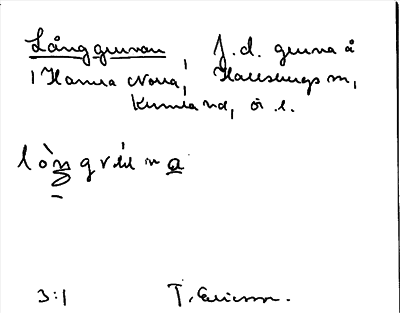 Långgrunan, f.d. gruna å
i Hamra Norra, Hallsbergs sn,
Kumla hd, ör. l.
lòŋgrʉ́na
3:1 T. Ericsson.